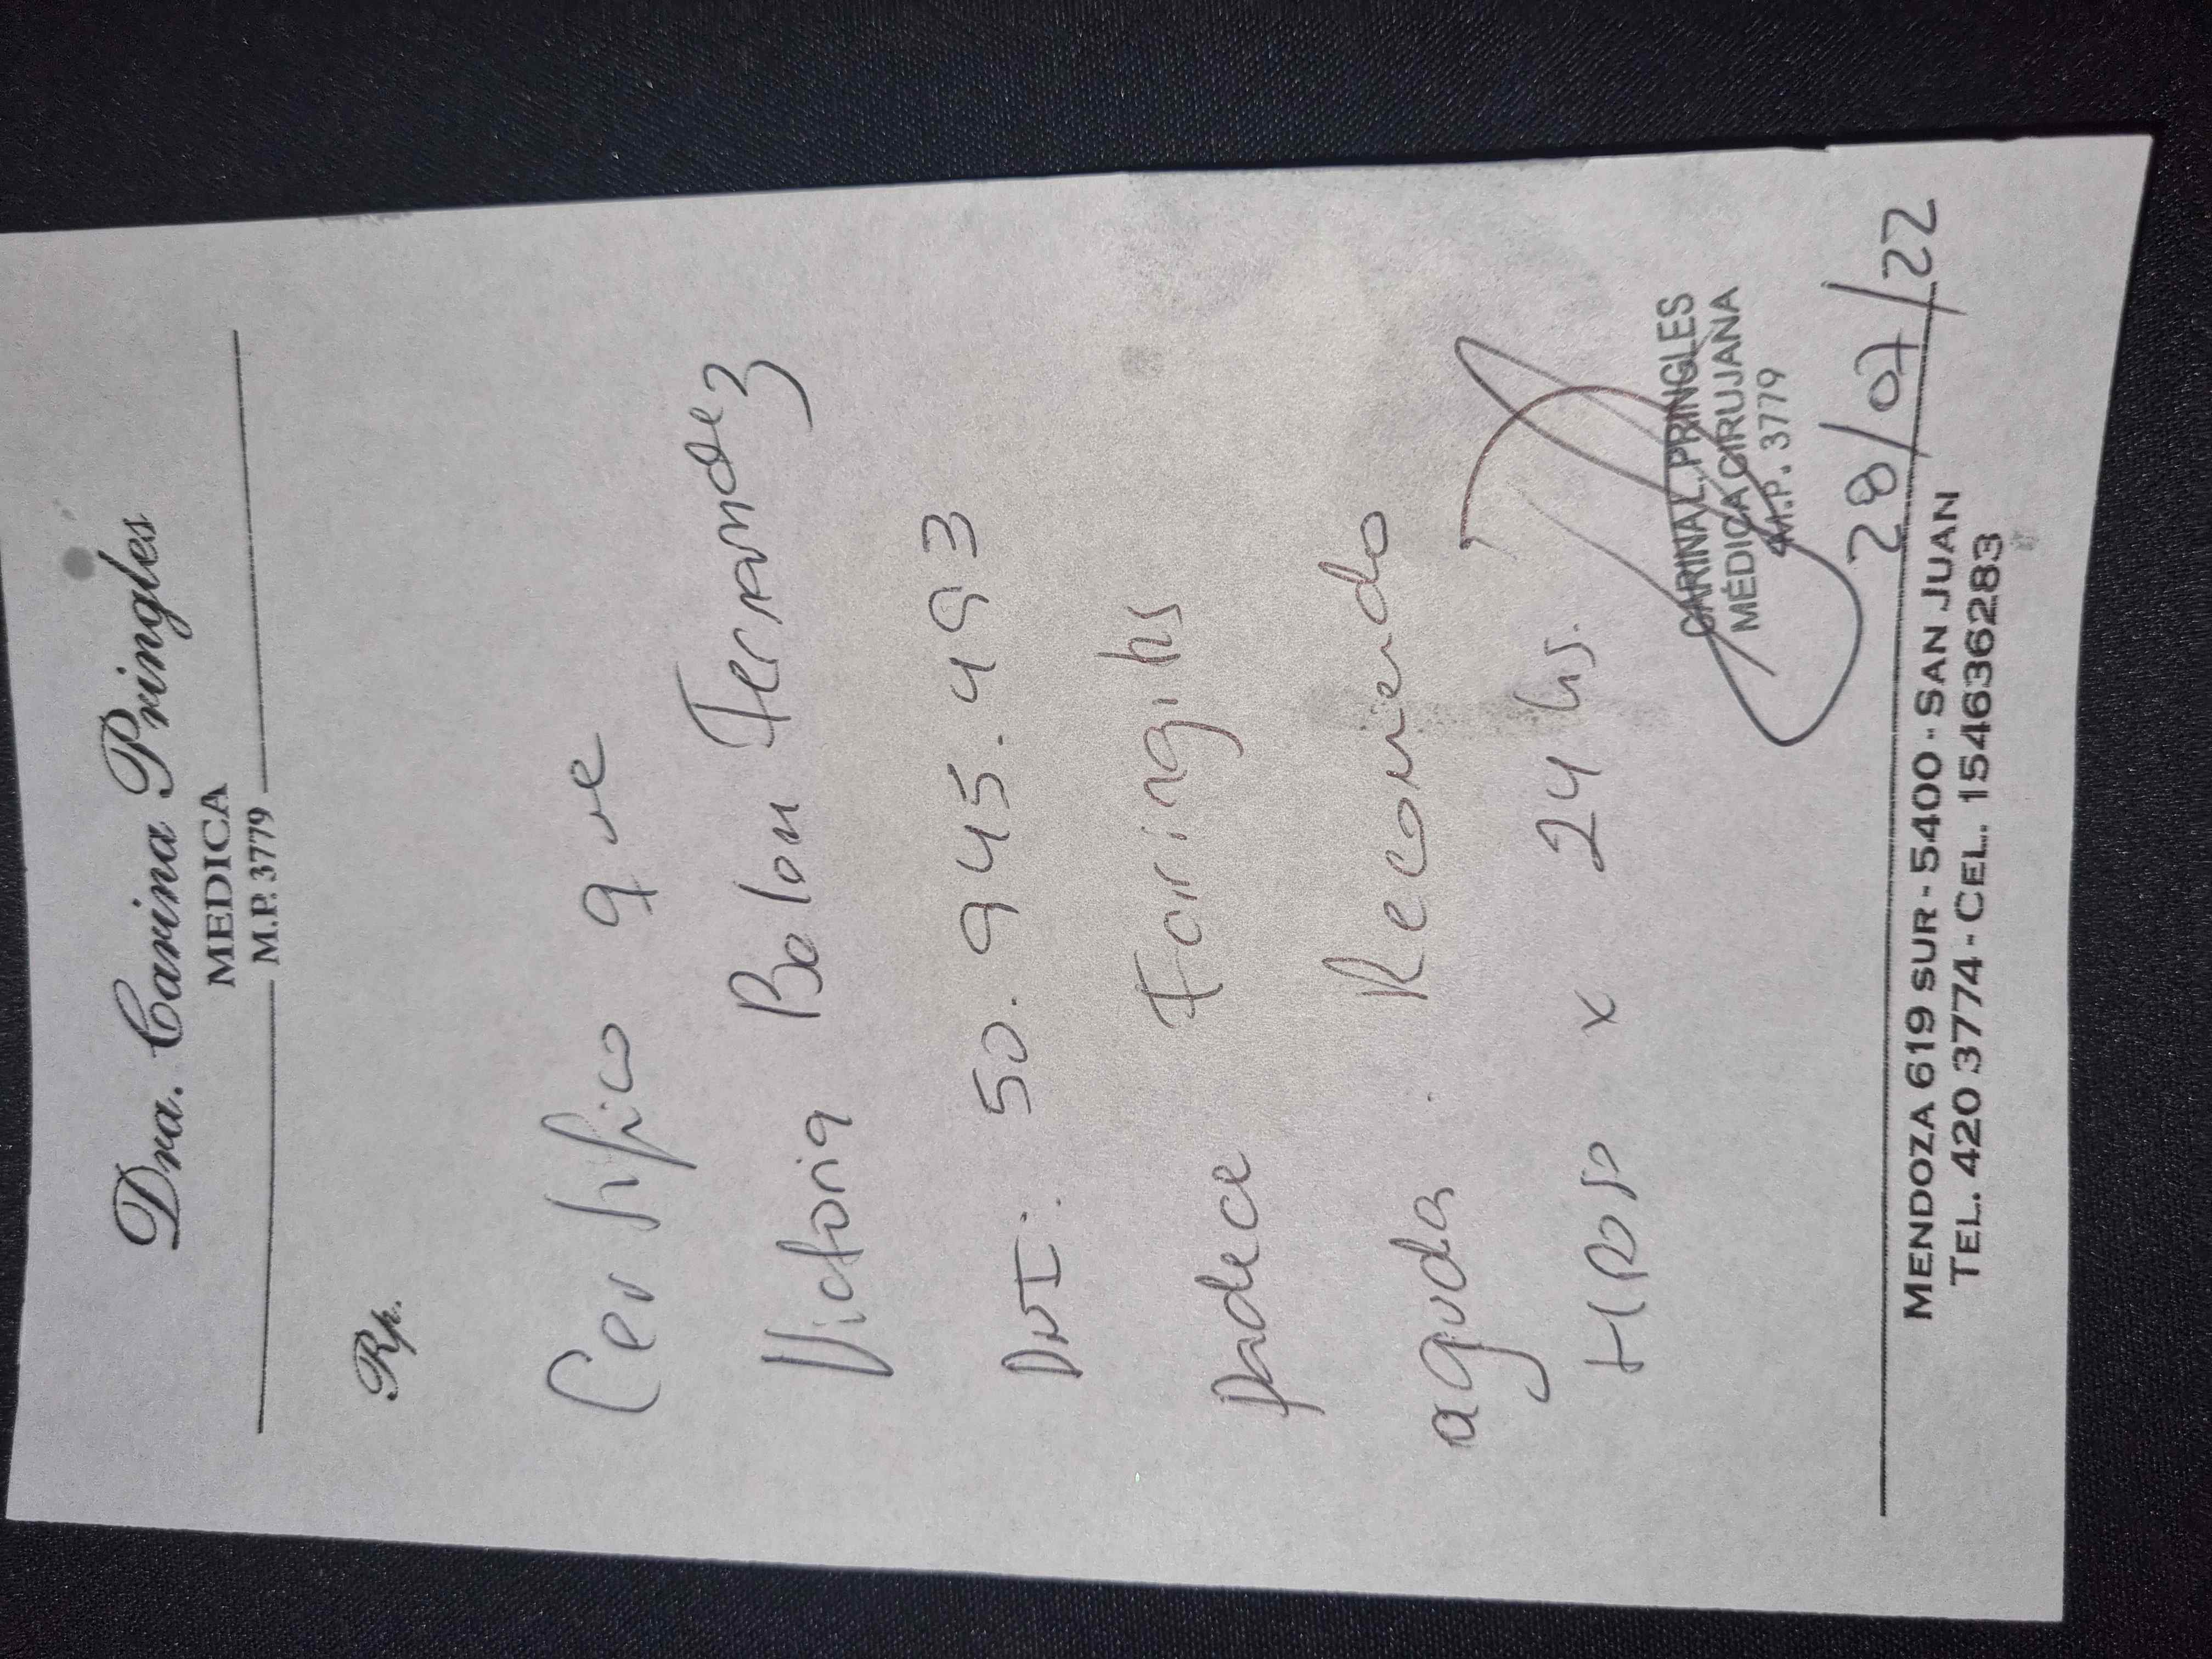 Dra. Carina Pringles
MEDICA
M.P. 3779
Rp.
Certifico que
Victoria Balon Fernandez
DNI: 50.945.493
padece Faringitis
aguda. Recomiendo
x 24 hs.
CARINA L. PRINGLES
MÉDICA CIRUJANA
M.P. 3779
28/07/22
MENDOZA 619 SUR - 5400 - SAN JUAN
TEL. 420 3774 - CEL. 154636283